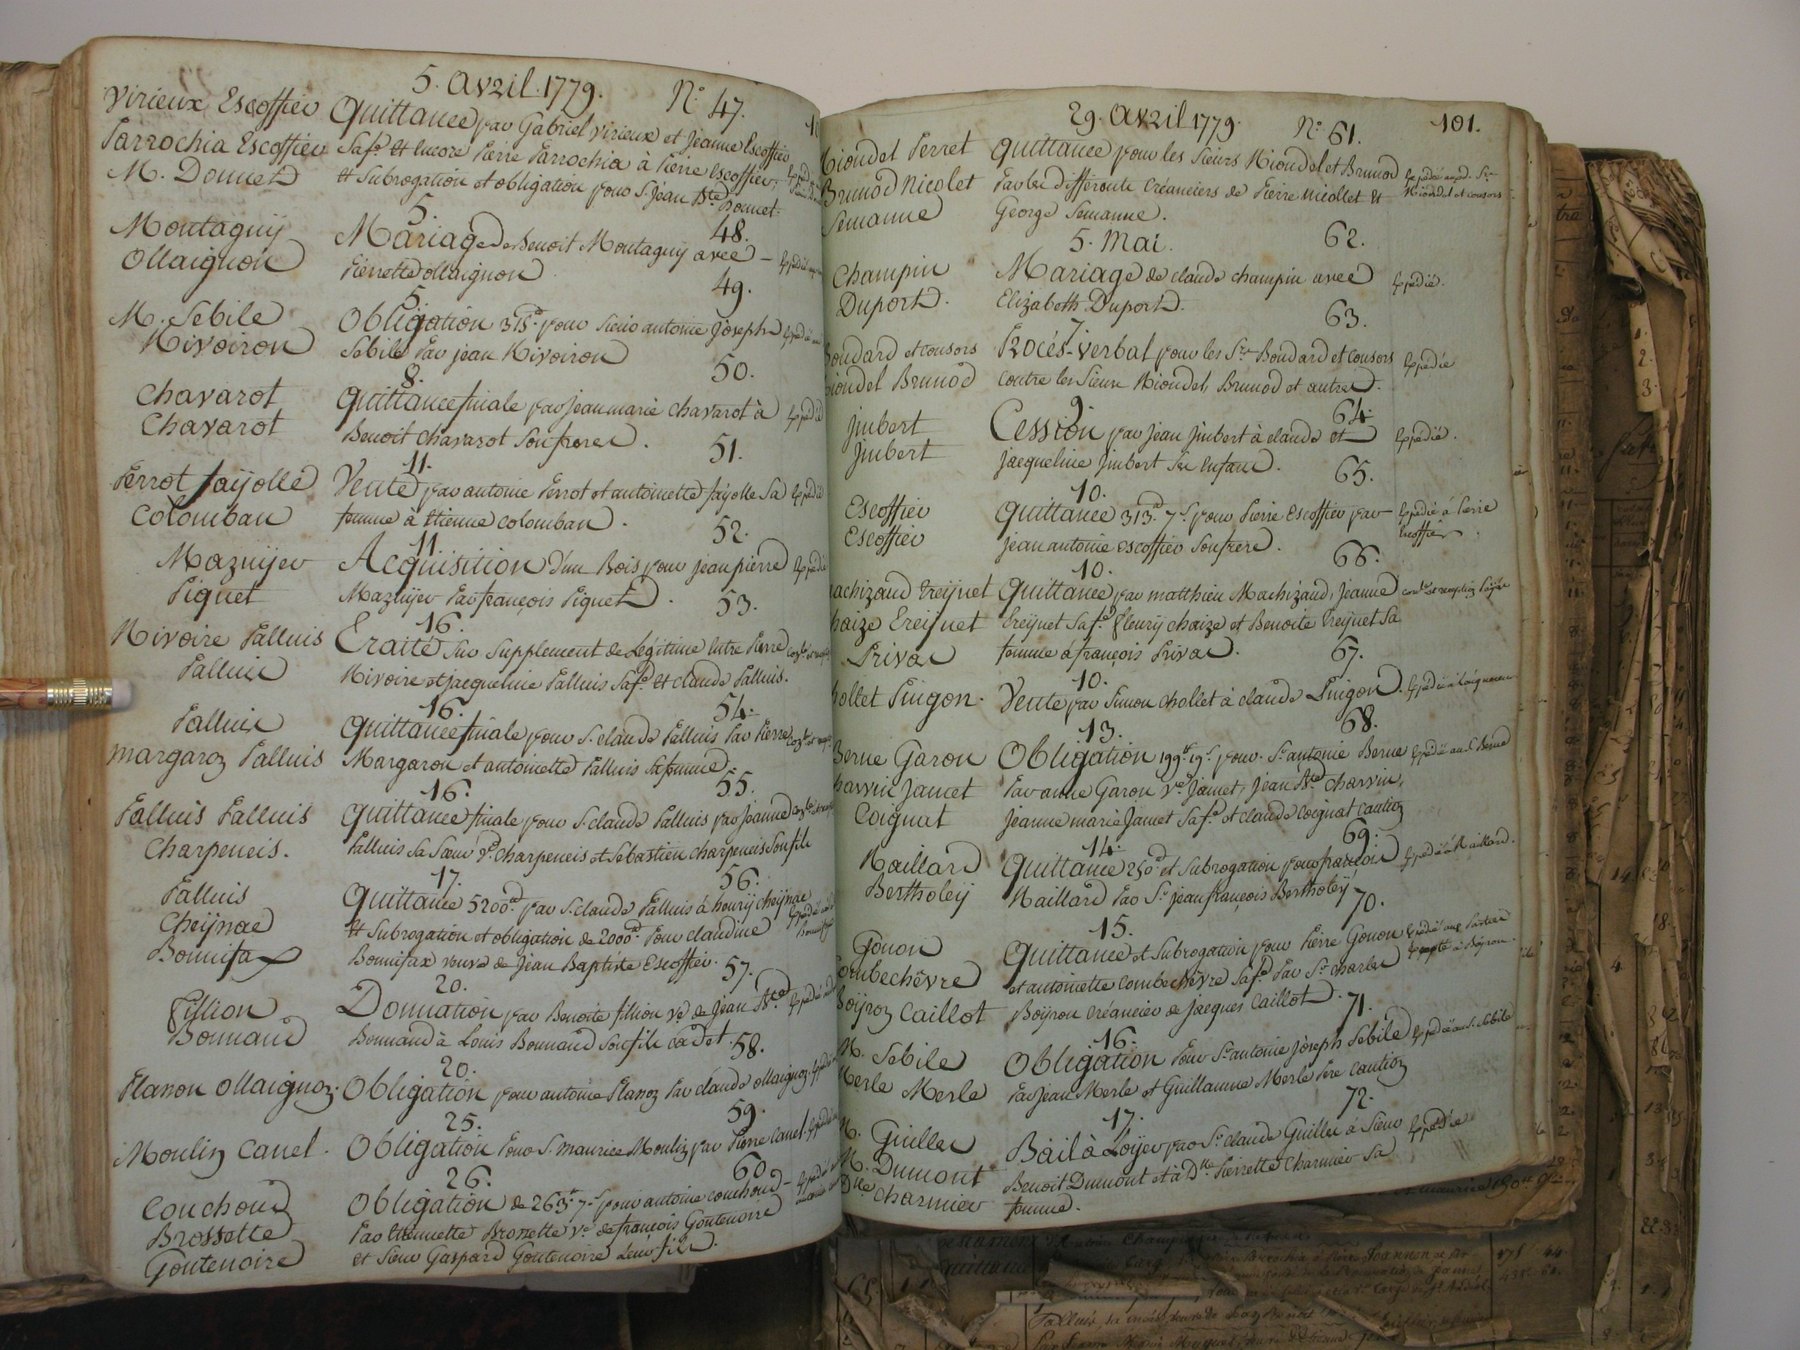 5. Avril. 1779.
Virieux Escoffier Quittance par Gabriel Virieux et Jeanne Escoffier N° 47.
Parrochia Escoffier Sa fe. Et Encore Pierre Parrochia à Pierre Escoffier,
M. Donnet Et Subrogation et obligation pour S. Jean Bte Donnet.
5. 48.
Montaguÿ Mariage de Benoit Montaguÿ avec Expédié
Ollaignon Pierrette ollaignon
5. 49.
M. Sebile Obligation 315lt pour Sieur antoine Joseph Expédié
Rivoiron Sebile Par jean Rivoiron
8. 50.
Chavarot Quittance finale par Jean marie Chavarot à Expédié
Chavarot Benoit Chavarot Son frere.
11. 51.
Perrot faÿolle Vente par antoine Perrot et antoinette faÿolle Sa Expédié
Colomban femme à Etienne Colomban.
11. 52.
Mazuÿer Acquisition d'un Bois pour jean pierre Expédié
Piguet Mazuÿer Par françois Piguet.
16. 53.
Rivoire Palluis Traité Sur Supplement de Légitime Entre Pierre
Palluis Rivoire et Jacqueline Palluis Sa fe. Et claude Palluis.
16. 54.
Palluis Quittance finale pour S. claude Palluis Par Pierre
Margaron Palluis Margaron et antoinette Palluis Sa femme
16. 55.
Palluis Palluis Quittance finale pour S. claude Palluis par Jeanne
Charpeneis. Palluis Sa Sœur Ve Charpeneis et Sebastien Charpeneis Son fils
17. 56.
Palluis Quittance 5200lt par S. claude Palluis à henrÿ Cheÿnac
Cheÿnac Et Subrogation et obligation de 2000lt Pour claudine Expédié
Bonnifax Bonnifax veuve de Jean Baptiste Escoffier.
20. 57.
Fillion Donnation par Benoite fillion Ve de Jean Bte Expédié
Bonnand Bonnand à Louis Bonnand Son fils cadet.
20. 58.
Planson Ollaignon. Obligation pour antoine Planson Par claude ollaignon. Expédié
25. 59.
Moulin Canel. Obligation Pour S. Maurice Moulin par Pierre Canel. Expédié
26. 60.
Couchoud Obligation de 263lt 7s. pour antoine couchoud
Brossette Par Etiennette Brossette Ve de françois Goutenoire
Goutenoire et Sieur Gaspard Goutenoire Leur fils.
29. Avril 1779. N° 61. 101.
Riondel Perret Quittance pour les Sieurs Riondel et Brunod Expédié aud. Sr.
Brunod Nicolet Par les differents Créanciers de Pierre Nicollet Et Riondel et consors
Semanne George Semanne.
5. Mai. 62.
Champin Mariage de claude Champin avec Expédié.
Duport. Elizabeth Duport.
7. 63.
Boudard et consors Procés-verbal pour les Srs Boudard et consors Expédié
Riondel Brunod Contre les Sieurs Riondel, Brunod et autres.
9. 64.
Jmbert Cession par Jean Jmbert à claude et Expédié.
Jmbert Jacqueline Jmbert Ses Enfans.
10. 65.
Escoffier Quittance 313lt 7s. pour Pierre Escoffier par Expédié à Pierre
Escoffier jean antoine escoffier Son frere. Escoffier.
10. 66.
Machizaud Treÿnet Quittance par matthieu Machizaud, Jeanne
Chaize Treÿnet Treÿnet Sa fe. fleurÿ Chaize et Benoite Treÿnet Sa
Privat femme à françois Privat.
10. 67.
Chollet Pingon. Vente par Simon Chollet à claude Pingon. Expédié à l'acquereur
13. 68.
Berne Garon Obligation 199lt 19s. pour Sr. antoine Berne Expédié au S. Berne
Charvin Jamet Par anne Garon Ve Jamet, Jean Bte Charvin,
Coignat Jeanne marie Jamet Sa fe. et claude Coignat Caution
14. 69.
Maillard Quittance 250lt et Subrogation pour françois Expédié à Maillard.
Bertholeÿ Maillard Par Sr. jean françois Bertholeÿ
15. 70.
Gonon Quittance et Subrogation pour Pierre Gonon Expédié aux Parties
Combechêvre et antoinette Combechêvre Sa fe. Par Sr. Charles Excepté à Boÿron.
Boÿron Caillot Boÿron Créancier de Jacques Caillot.
16. 71.
M. Sebile Obligation Pour Sr. antoine Joseph Sebile Expédié au S. Sebile
Merle Merle Par Jean Merle et Guillaume Merle Père Caution
17. 72.
M. Guiller Bail à Loÿer par Sr. claude Guiller à Sieur Expédié
M. Dumont Benoit Dumont et à Dlle Pierrette Charmier Sa
Dlle Charmier femme.